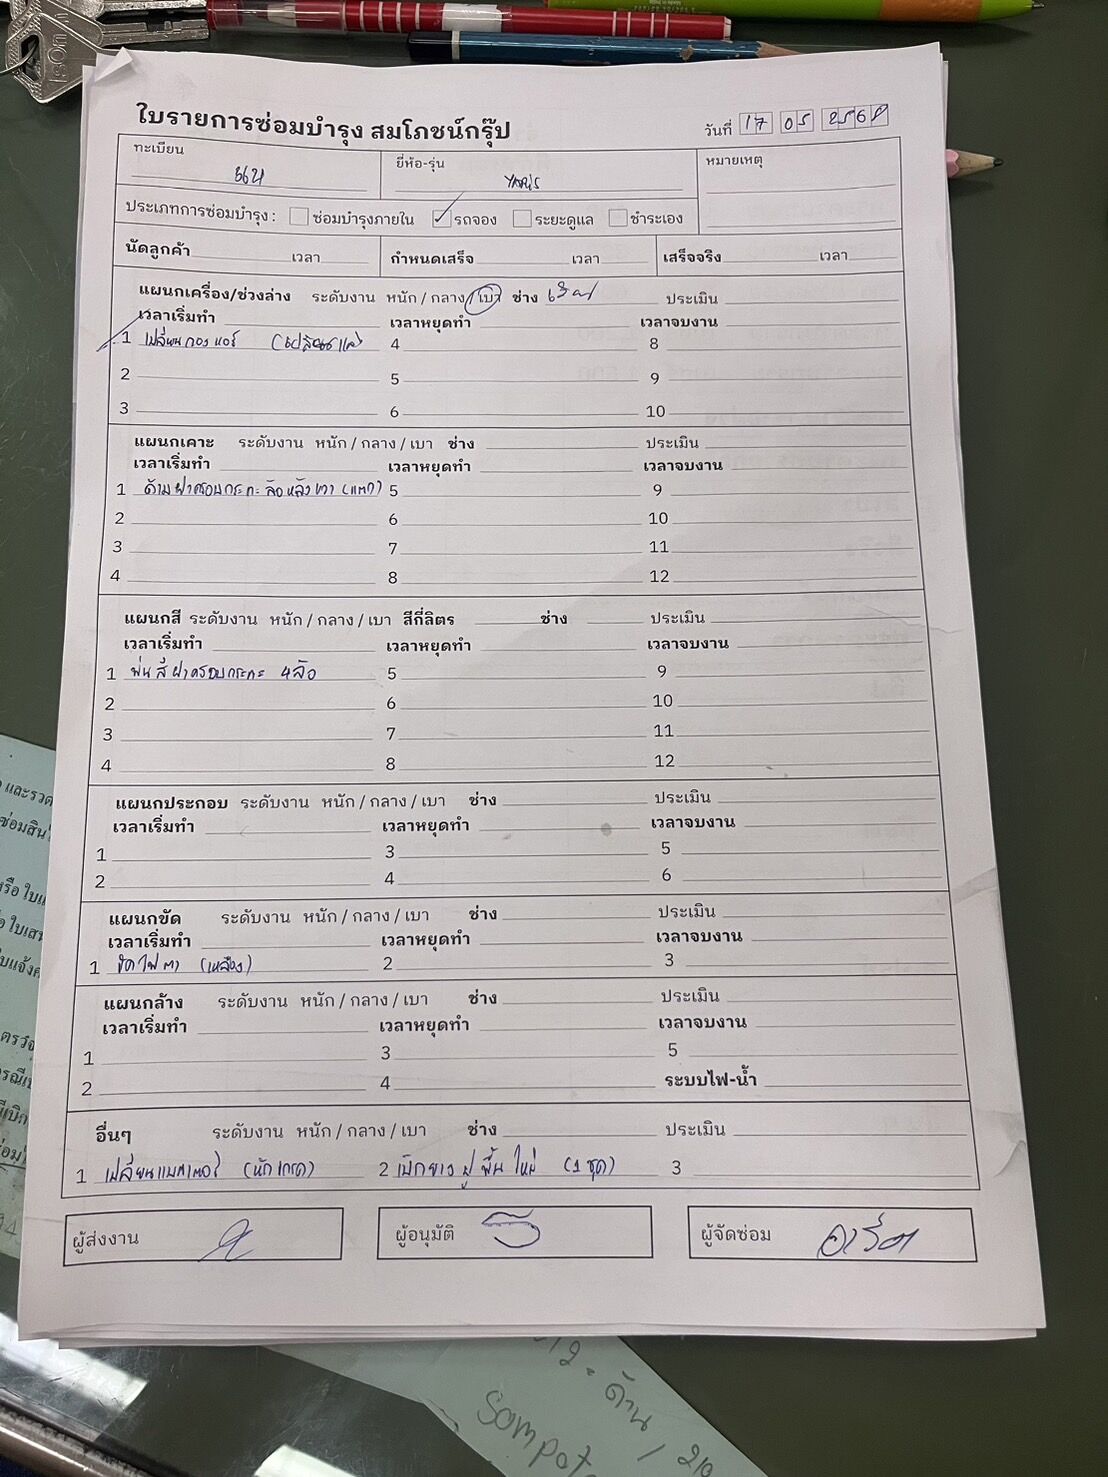 ใบรายการซ่อมบำรุง สมโภชน์กรุ๊ป
วันที่ 17 05 2568
ทะเบียน
ยี่ห้อ-รุ่น YARIS
หมายเหตุ
ประเภทการซ่อมบำรุง : ซ่อมบำรุงภายใน รถจอง ระยะดูแล ชำระเอง
นัดลูกค้า เวลา กำหนดเสร็จ เวลา เสร็จจริง เวลา
แผนกเครื่อง/ช่วงล่าง ระดับงาน หนัก / กลาง / เบา ช่าง ประเมิน
เวลาเริ่มทำ เวลาหยุดทำ เวลาจบงาน
1 เปลี่ยนกรองแอร์ 4 8
2 5 9
3 6 10
แผนกเคาะ ระดับงาน หนัก / กลาง / เบา ช่าง ประเมิน
เวลาเริ่มทำ เวลาหยุดทำ เวลาจบงาน
1 ฝาครอบกระทะล้อหลังขวา (แตก) 5 9
2 6 10
3 7 11
4 8 12
แผนกสี ระดับงาน หนัก / กลาง / เบา สีกี่ลิตร ช่าง ประเมิน
เวลาเริ่มทำ เวลาหยุดทำ เวลาจบงาน
1 พ่นสีฝาครอบกระทะ 4ล้อ 5 9
2 6 10
3 7 11
4 8 12
แผนกประกอบ ระดับงาน หนัก / กลาง / เบา ช่าง ประเมิน
เวลาเริ่มทำ เวลาหยุดทำ เวลาจบงาน
1 3 5
2 4 6
แผนกขัด ระดับงาน หนัก / กลาง / เบา ช่าง ประเมิน
เวลาเริ่มทำ เวลาหยุดทำ เวลาจบงาน
1 ขัดไฟตา (เหลือง) 2 3
แผนกล้าง ระดับงาน หนัก / กลาง / เบา ช่าง ประเมิน
เวลาเริ่มทำ เวลาหยุดทำ เวลาจบงาน
1 3 5
2 4 ระบบไฟ-น้ำ
อื่นๆ ระดับงาน หนัก / กลาง / เบา ช่าง ประเมิน
1 เปลี่ยนแบตเตอรี่ 2 เบิกยางปูพื้นใหม่ (1 ชุด) 3
ผู้ส่งงาน ผู้อนุมัติ ผู้จัดซ่อม